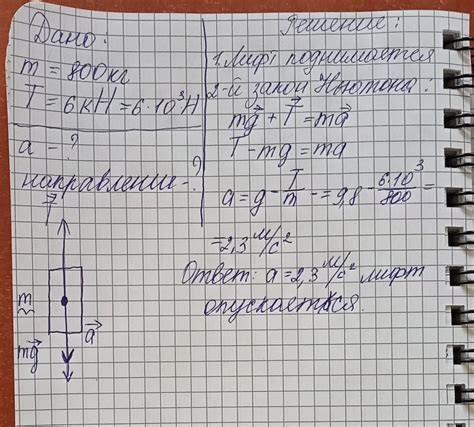 Дано:
m = 800кг
T = 6кН = 6·10³Н
a - ?
направление - ?
T⃗
m
mg⃗
a⃗
Решение:
1. Лифт поднимается
2-й закон Ньютона:
mg⃗ + T⃗ = ma⃗
T - mg = ma
a = g - T/m = 9,8 - 6·10³/800 =
= 2,3 м/с²
Ответ: a = 2,3 м/с² лифт
опускается.